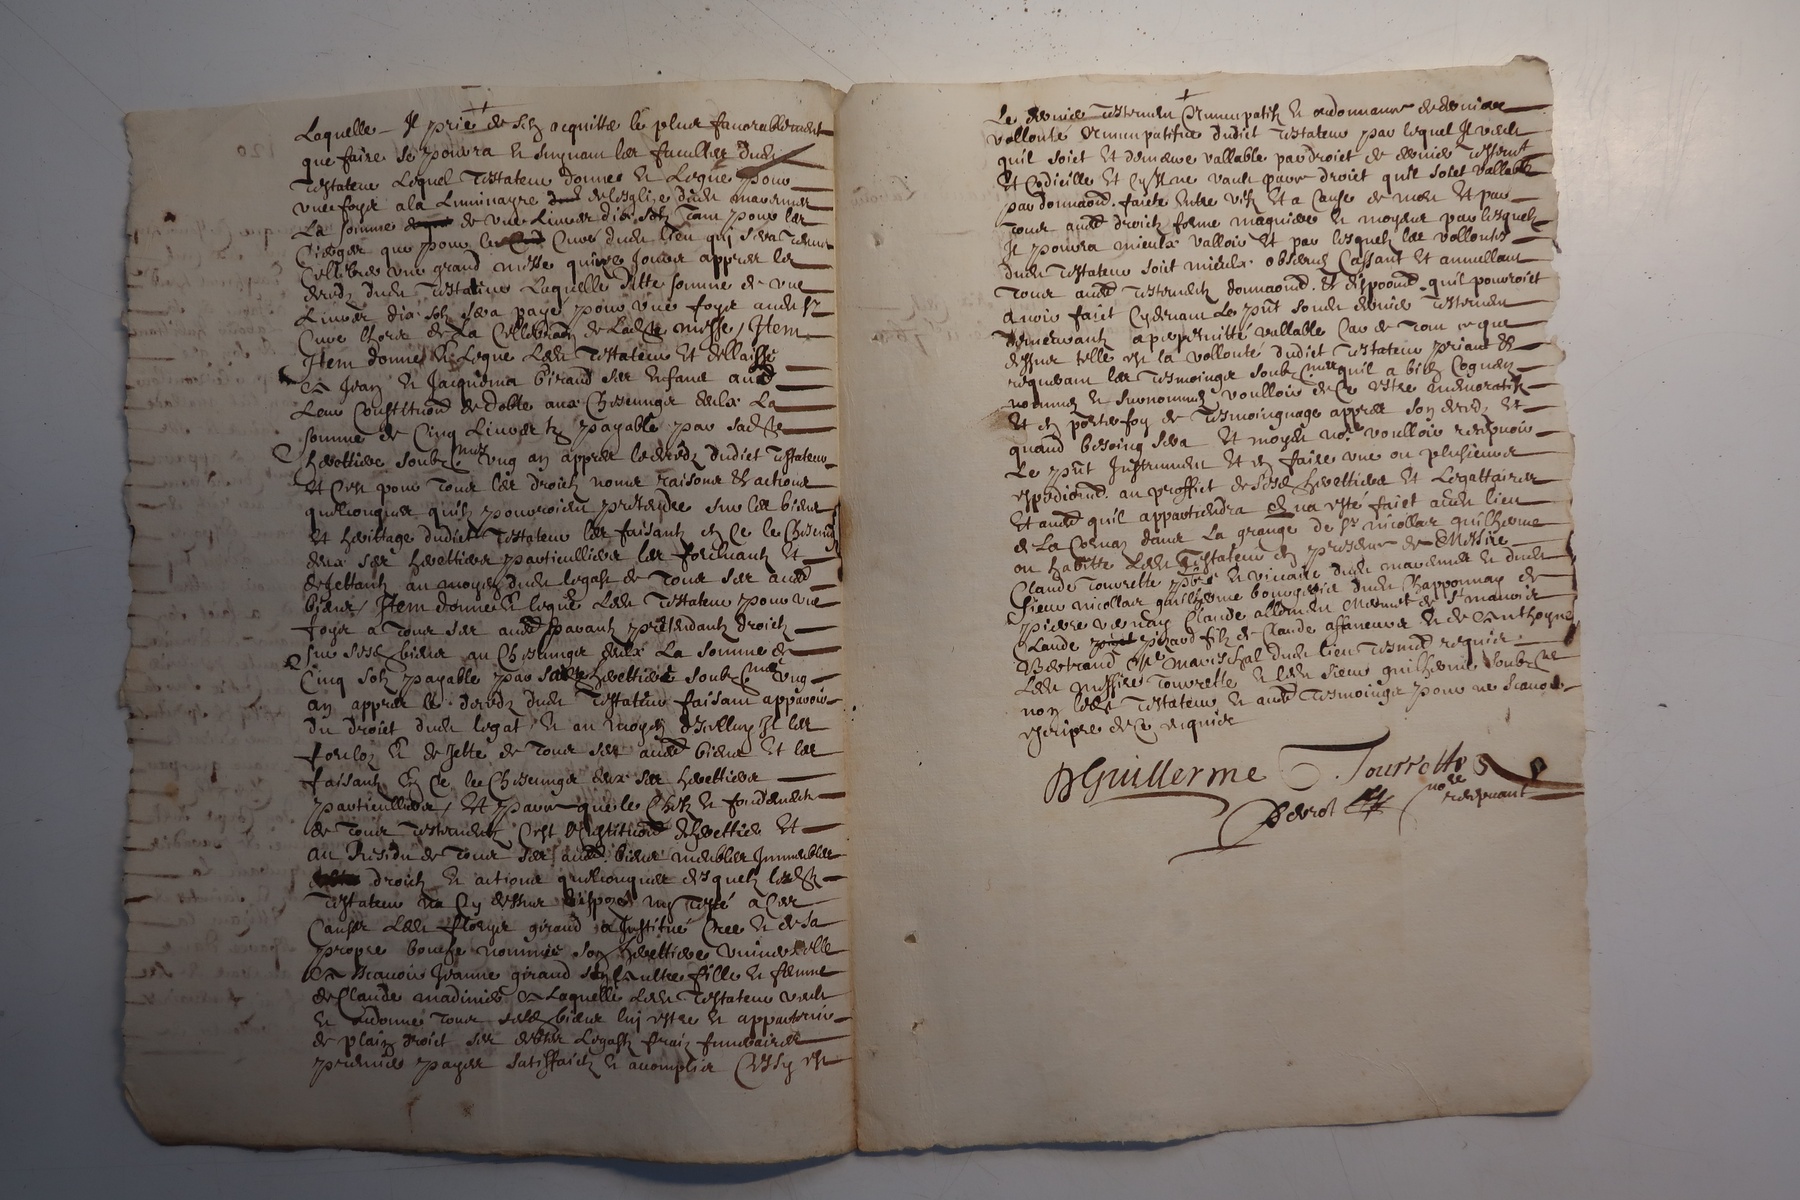 Laquelle Il prie de s'en acquitter le plus favorablement
que faire se pourra et suyvant les facultes dudit
testateur Lequel testateur donne et Legue pour
une foys a la Luminayre de lesglise dudit
La somme de une Livre dix solz tant pour les
Cierges que pour le Curé dudit lieu qui sera tenu
Cellebrer une grand messe quinze Jours appres le
deces dudit testateur Laquelle ditte somme de une
Livre dix solz sera paye pour une foys audit sr
Curé lhors de La Cellebraon de Ladte messe / Item
Item donne et Legue Ledit testateur et dellaisse
a Jean et Jacquema Giraud ses enfans
Leur constitution de doble aux Chescungs deulx La
somme de Cinq Livres tz payable par sadte
herettiere soubz nommée ung an appres le deces dudict testateur
Et C'est pour tous les droictz noms raisons et actions
quelconques quilz pourroient prettendre sur les biens
Et herittage dudict testateur les faisantz en Ce le Chescung
deux ses herettiers particulliers les forcluantz et
dejettantz au moyen dudit legat de tous ses aues
biens / Item donne et legue Ledit testateur pour une
foys a tous ses aues pavantz prethendantz droictz
sur sesd biens au Chescungs deulx La somme de
Cinq solz payable par sadte herettiere soubz nommée ung
an appres le deces dudit testateur faisant apparoir
du droict dudit legat et au moyen d'icelluy Il les
forcloz et dejette de tous ses aues biens et les
faisantz en Ce les Chescungs deux ses herettiers
particulliers / Et parce que le Chefz et fondement
de tous testementz Cest L'institution d'herettier Et
au Residu de tous ses aues biens meubles Immeubles
droictz et actions quelconques desquelz ledit
testateur na Cy dessus dispozé ny testé a Ces
Causes Ledit Giraud a Institué Cree et de sa
propre bouche nommée son herettiere univercelle
a Scavoir Jeanne giraud son aultre fille et femme
de Claude madinier a Laquelle Ledit testateur veult
et ordonne tous sesd biens luy estre et appartenir
de plain droict ses debtes Legatz fraiz funeraires
premier payes satisfaictz et accomplis Cessy est
Le dernier testement Nuncupatifz et ordonnance de derniere
vollonté Nuncupatifve dudict testateur par lequel Il veult
quil soict Et demeure vallable par droict de dernier testemt
Et Codicille Et Cy Il ne vault par droict quil soict vallable
par donnaon faicte entre vifz Et a Cause de mort Et par
tous aues droictz forme magniere et moyens par lesquelz
Il pourra mieulx valloir Et par lesquelz les vollontés
dudit testateur soit mieulx observés Cassant et annullant
tous aues testementz donnaons et dispoons quil pourroict
avoir faict Cydevant Le pnt son dernier testement
demeurant a perpetuitté vallable Car de tout ce que
dessus telle est la vollonté dudict testateur priant et
requerant les tesmoings soubznes quil a bien Cognus
nommes et surnommes voulloir de Ce estre memoratifz
Et en porter foy de tesmoingnage appres son deces Et
quand besoing sera Et moyen nore voulloir recepvoir
Le pnt Instrument Et en faire une ou plusieurs
expedions au proffict de sesd herettiers et Legattaires
Et aues quil appartiendra et na esté faict audit lieu
de La Cornaz dans La grange de sr nicollas guilherme
ou habitte Ledit testateur en presence de Messire
Claude Tourrette pbre et vicaire dudit et dudit
sieur nicollas guilherme bourgeois dudit Chapponnay de
pierre vernay Claude allemen
Claude picard filz de Claude affaneurs et de Anthoyne
Bertrand Me Mareschal dudit lieu tesmoins requis
Ledit messire Tourrette et ledit sieur guilherme soubzne
non ledit testateur et aues tesmoings pour ne scavoir
escripre de Ce requis
DGuillerme Tourrette
Perrot nore recepvant